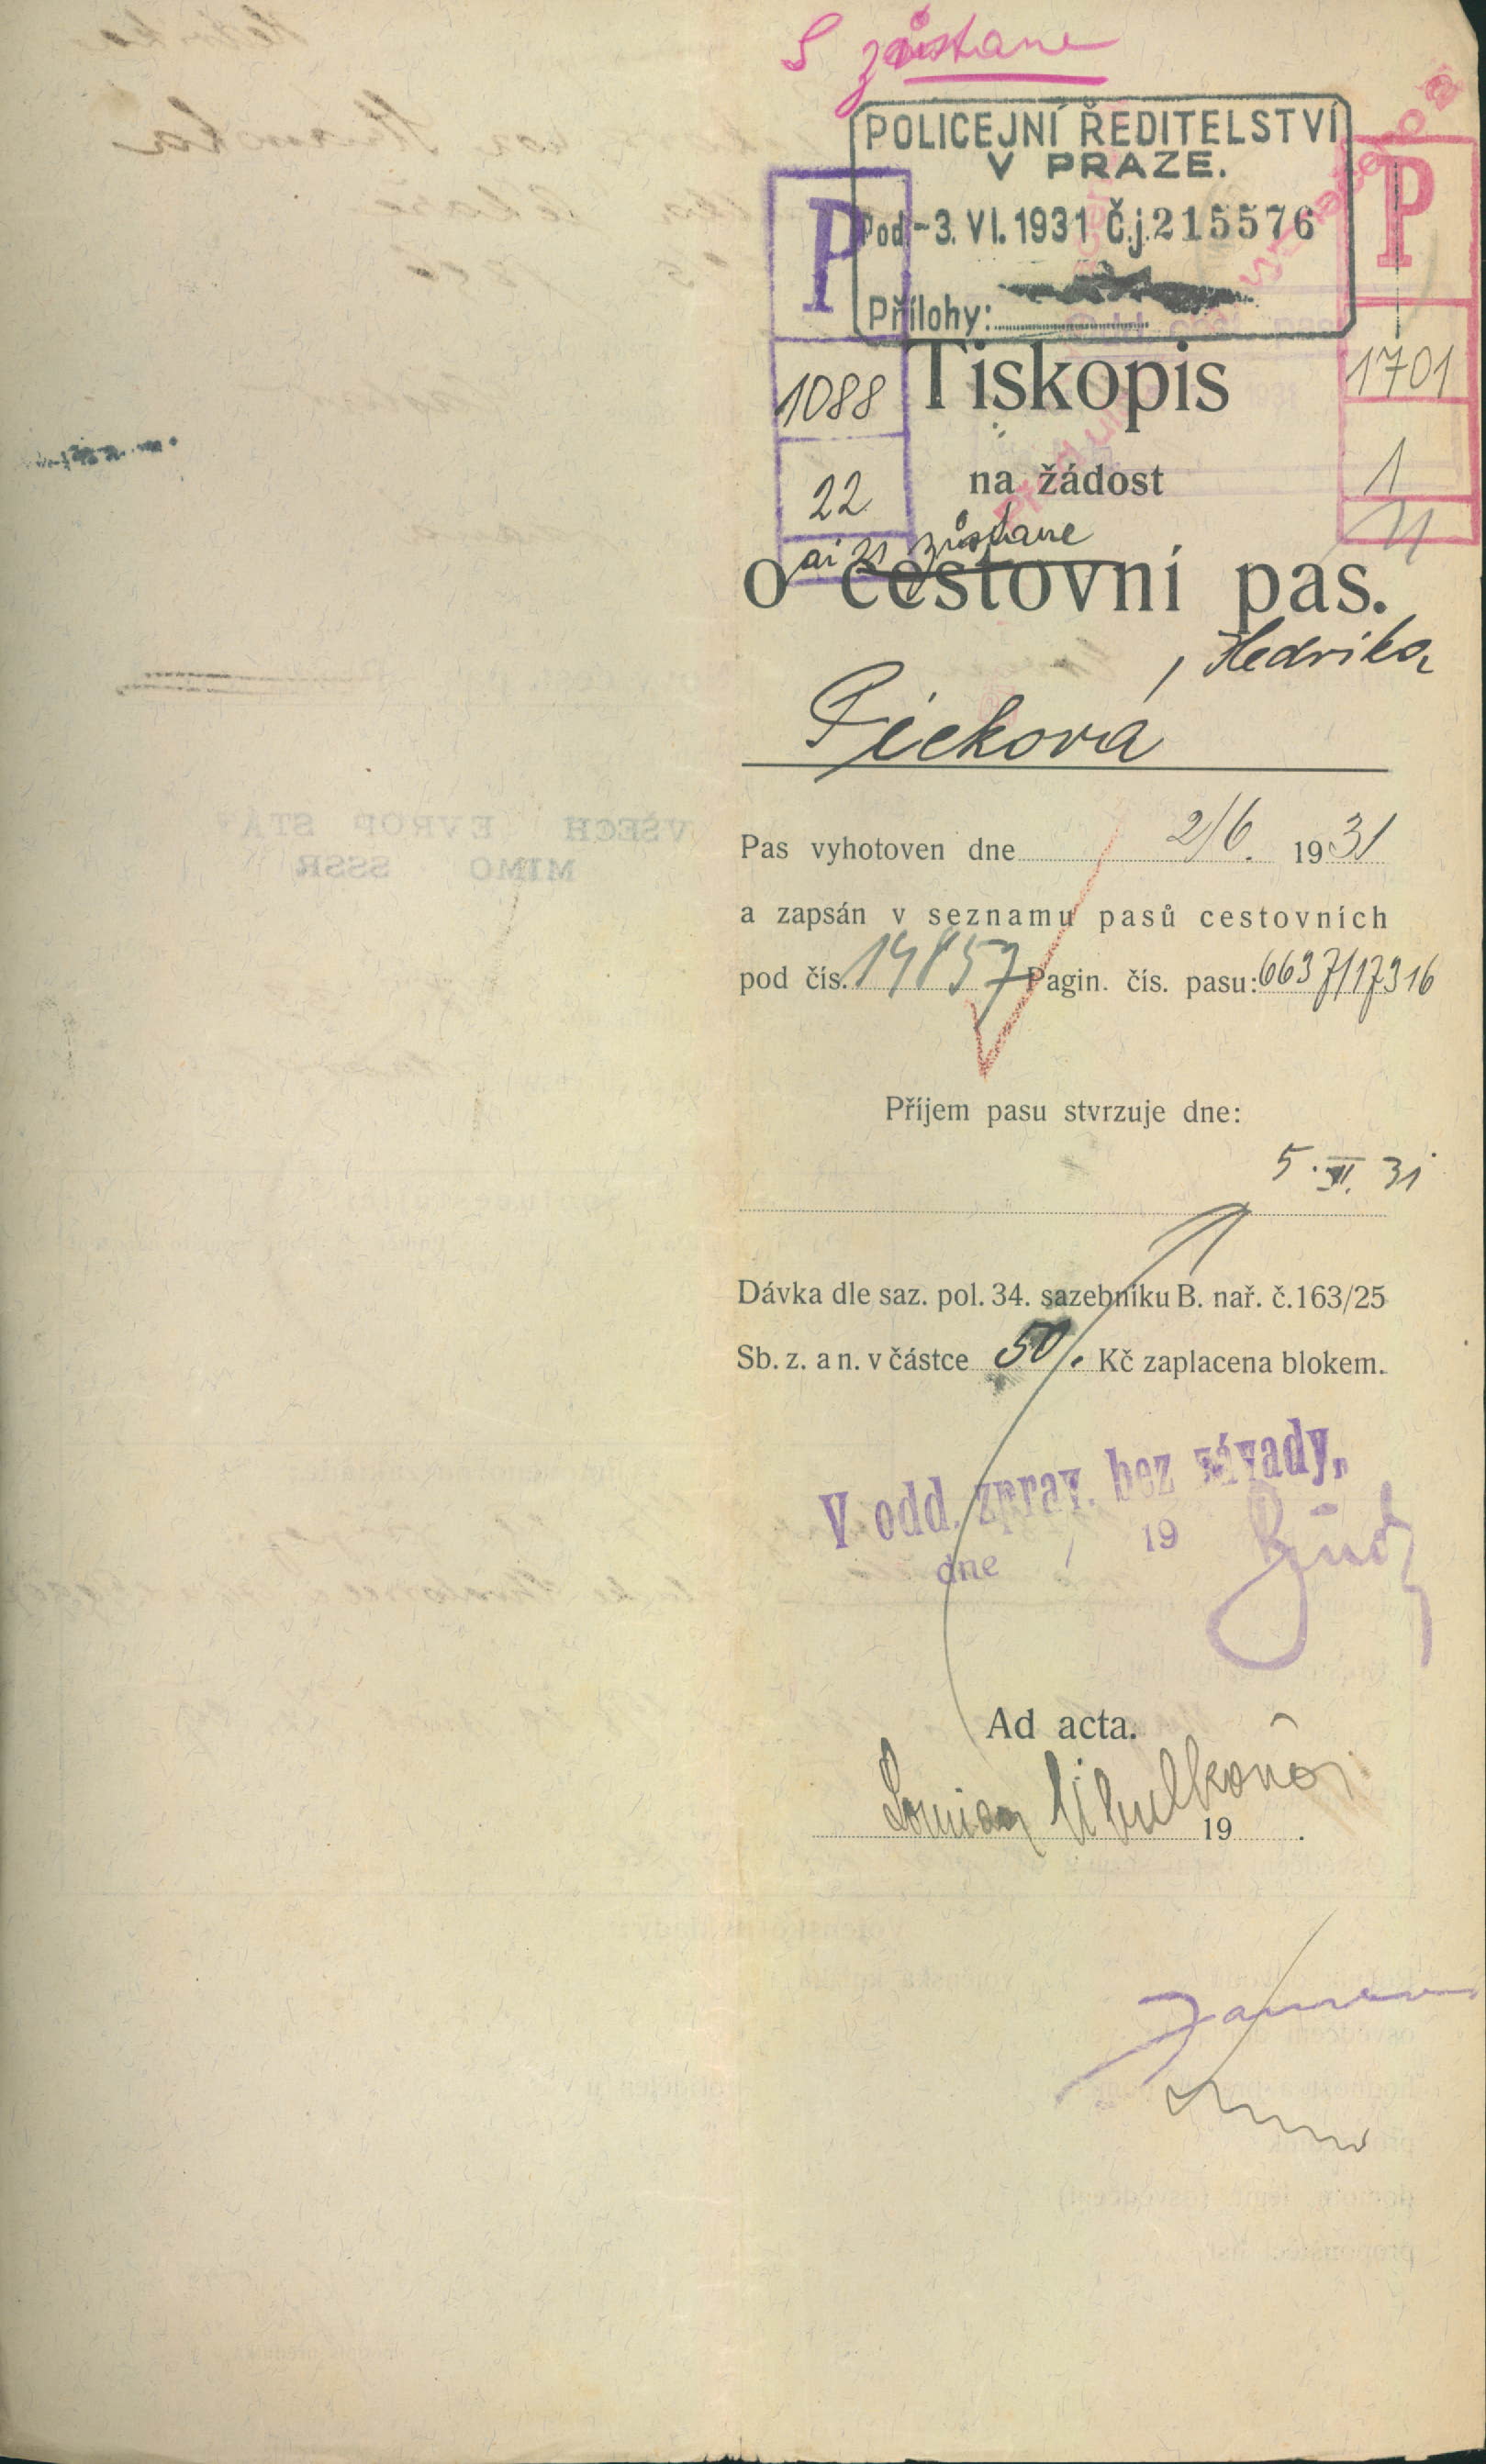 S zůstane
POLICEJNÍ ŘEDITELSTVÍ
V PRAZE.
Pod -3. VI. 1931 Č.j. 215576
Přílohy:
P
1088
22
P
1701
1
Tiskopis
na žádost
zůstane
o cestovní pas.
, Hedvika
Picková
Pas vyhotoven dne 2/6. 1931
a zapsán v seznamu pasů cestovních
pod čís. 14857 Pagin. čís. pasu: 6637/17316
Příjem pasu stvrzuje dne:
5. VI. 31
Dávka dle saz. pol. 34. sazebníku B. nař. č. 163/25
Sb. z. a n. v částce 50/. Kč zaplacena blokem.
V odd. zprav. bez závady,
dne 19
Ad acta.
19 .
VŠECH EVROP STÁT
MIMO SSSR